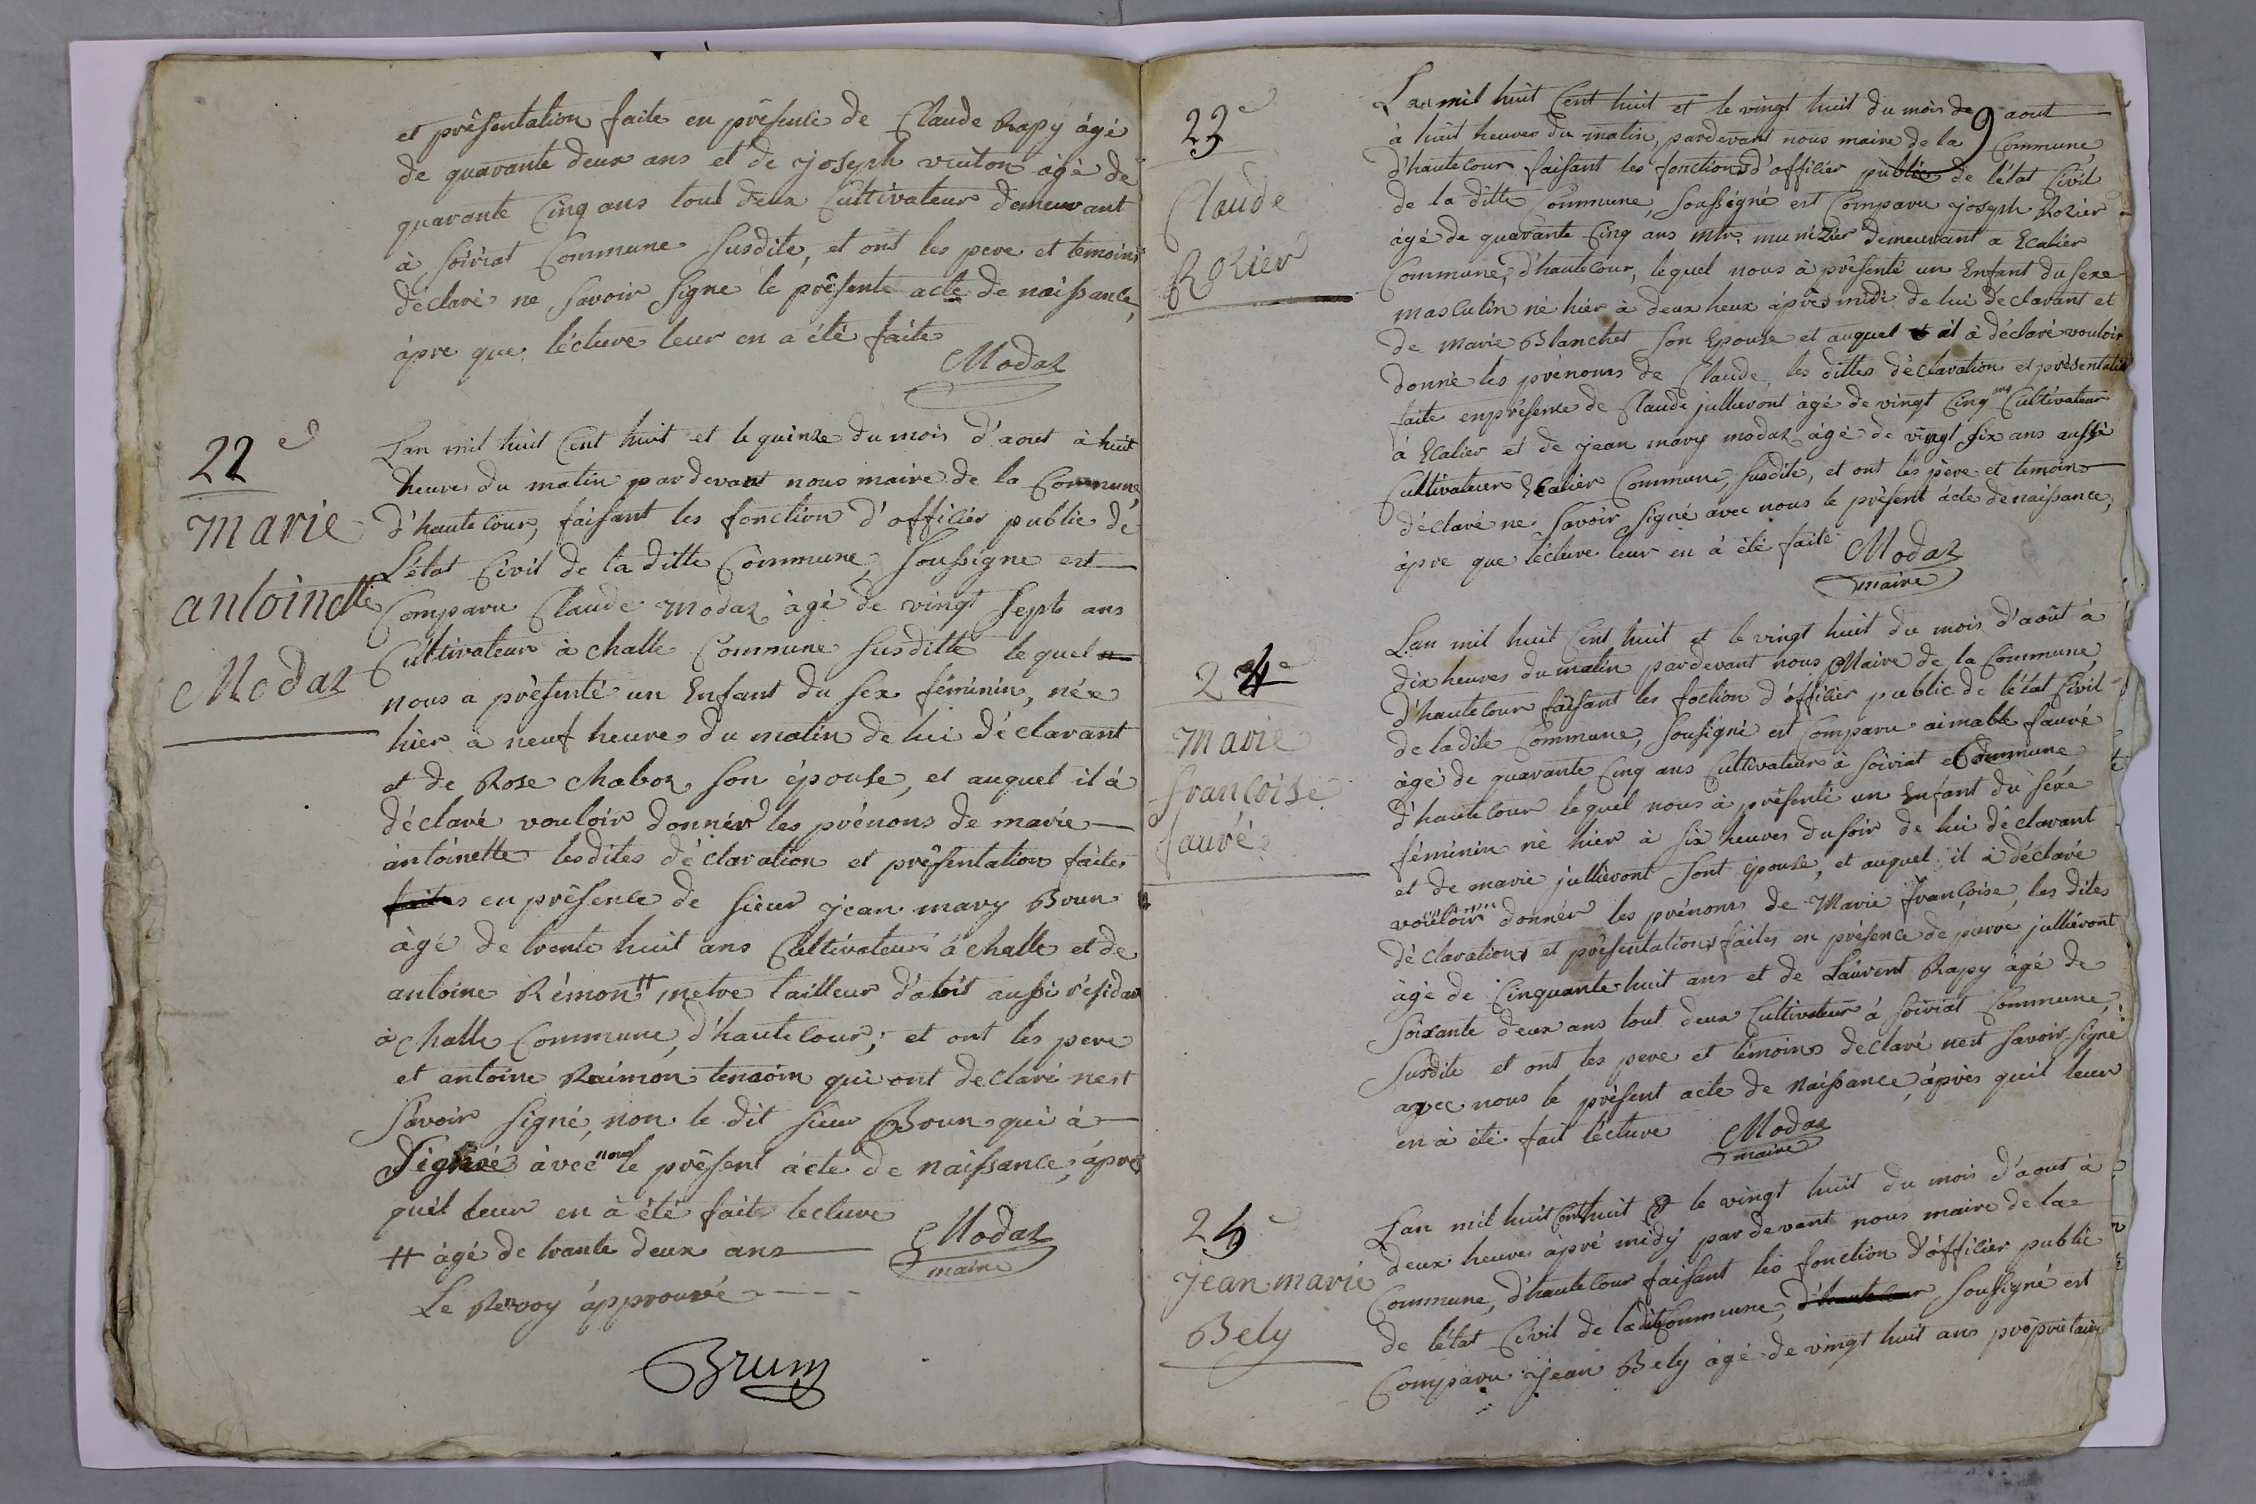 et présentation faite en présence de Claude Rapy àgé
de quarante deux ans et de joseph vuiton àgé de
quarante Cinq ans tout deux Cultivateur demeurant
à Soiriat Commune Susdite, et ont les pere et temoins
déclaré ne Savoir Signé le présente acte de naissance,
àpre que lécture leur en a été faite
Modaz
22e
Marie
antoinette
Modaz
Lan mil huit Cent huit et le quinze du mois d'aout à huit
heures du matin pardevant nous maire de la Commune
d'hautecour, faisant les fonction d'officier public de
L'état Civil de la ditte Commune, Soussigne est
Comparu Claude Modaz àgé de vingt Sept ans
Cultivateur à challe Commune Susditte lequel
nous a présenté un Enfant du Sex féminin, née
hier à neuf heures du matin de lui déclarant
et de Rose chaboz son épouse, et auquel il à
déclaré vouloir donnér les prénons de marie
àntoinette lesdites déclaration et présentation faites
faites en présence de Sieur jean mary Brun
àgé de trente huit ans Cultivateur à challe et de
antoine Rémon # metre tailleur d'abit aussi résidan
à challe Commune, d'hautecour; et ont les pere
et antoine Raimon temoin qui ont declaré nest
Savoir Signé, non le dit Sieur Brun qui à
Signé àvec nous le présent àcte de naissance, àpres
quil leur en à été fait lecture
# àgé de trante deux ans
Modaz
maire
Le Renvoy àpprouvé
Brun
23e
Claude
Rozier
Lan mil huit Cent huit et le vingt huit du mois de aout
9
à huit heures du matin, pardevant nous maire de la Commune
d'hautecour faisant les fonctions d'officier public de l'état Civil
de la ditte Commune, Soussigné est Comparu joseph Rozier
àgé de quarante Cinq ans mtr. munizier demeurant a Ecalier
Commune, d'hautecour, lequel nous à présenté un Enfant du Sexe
masculin né hier à deux heux àprès midi de lui déclarant et
de marie Blanchet Son Epouse et auquel il à déclaré vouloir
donné les prénoms de Claude, les dittes déclaration et présentation
faite en présence de Claude jullieront àgé de vingt Cinq ans Cultivateur
à Ecalier et de jean mary modaz àgé de vingt Six ans aussi
Cultivateur Ecalier Commune, Susdite, et ont les père et temoins
déclaré ne Savoir Signé avec nous le présent àcte de naissance,
àpre que lécture leur en à été faite
Modaz
maire
24e
Marie
francoise
fauré
Lan mil huit Cent huit et le vingt huit du mois d'août à
dix heures du matin pardevant nous Maire de la Commune,
d'hautecour faisant les foction d'officier public de l'état Civil
de ladite Commune, Sousigné est Comparu aimable fauré
àgé de quarante Cinq ans Cultivateur à Soiriat Commune
d'hautecour lequel nous à présenté un Enfant du Séxe
féminin né hier à Six heures du Soir de lui déclarant
et de marie jullieront Sont épouse, et auquel il à déclaré
vouloir donnér les prénoms de Marie françoise, les dites
déclarations et présentations faites en présence de pierre jullieront
àgé de Cinquante-huit ans et de Laurent Rapy àgé de
Soixante deux ans tout deux Cultivateur à Soiriat Commune,
Susdite et ont les pere et témoins declaré nest Savoir Signé
avec nous le présent acte de Naissance, àprès quil leur
en à été fait lécture
Modaz
maire
25e
Jean marie
Bely
Lan mil huit Cent huit Et le vingt huit du mois d'aout à
deux heures àpré midy par devant nous maire de la
Commune, d'hautecour faisant les fonction d'officier public
de l'état Civil de ladit Commune, d'hautecour Sousigné est
Comparu jean Bely àgé de vingt huit ans propriétaire